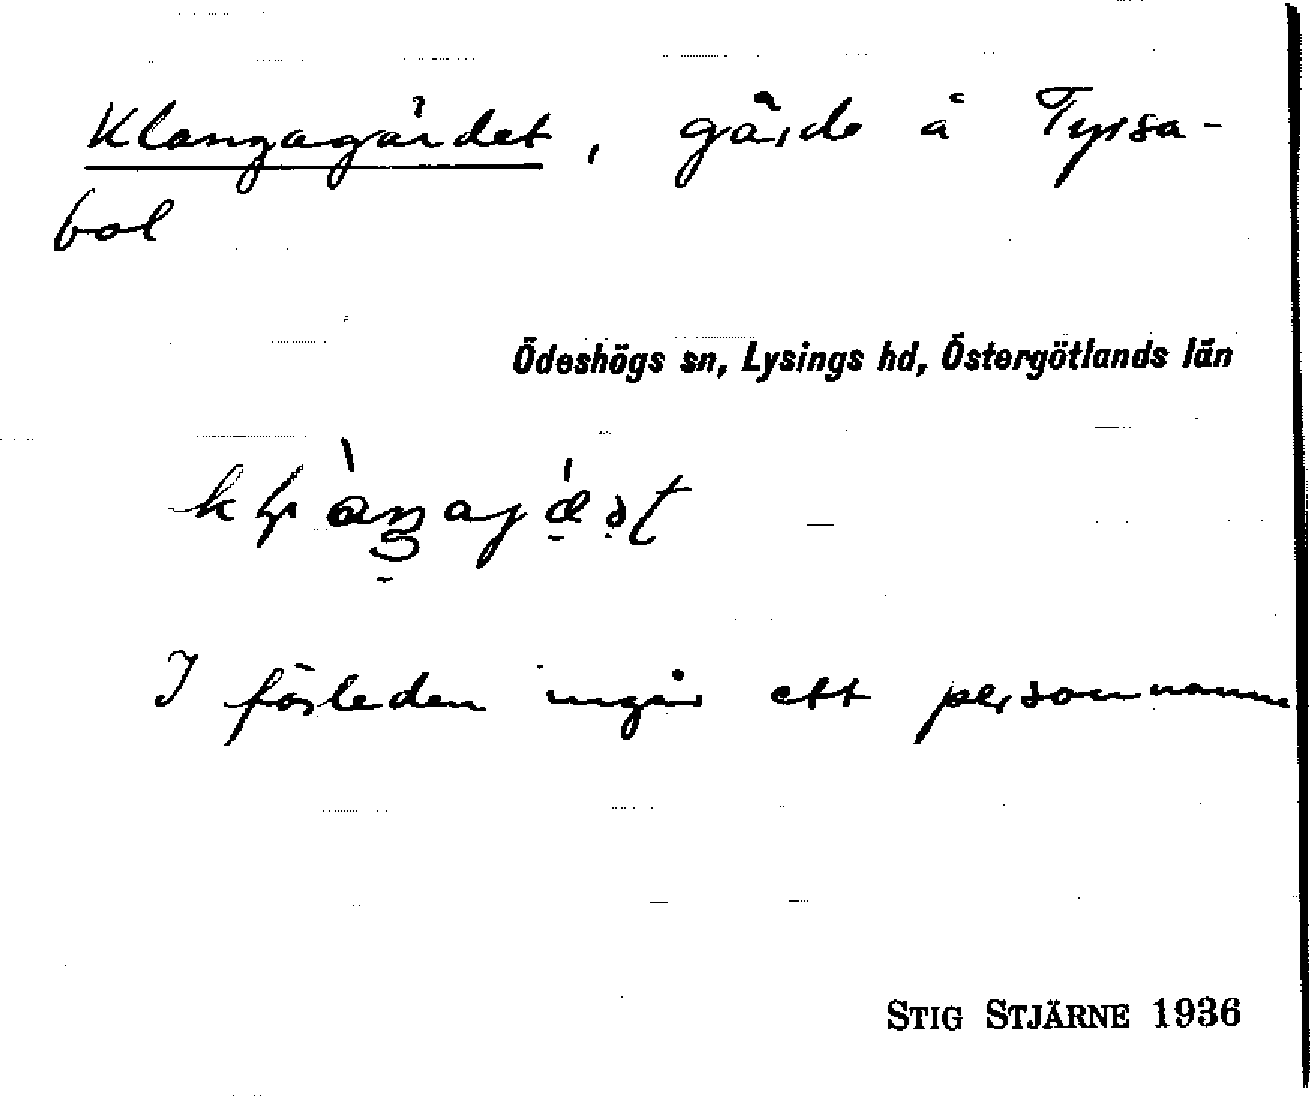 Klangagärdet, gärde å Tyrsa-
bol
Ödeshögs sn, Lysings hd, Östergötlands län
I förleden ingår ett personnamn
STIG STJÄRNE 1936